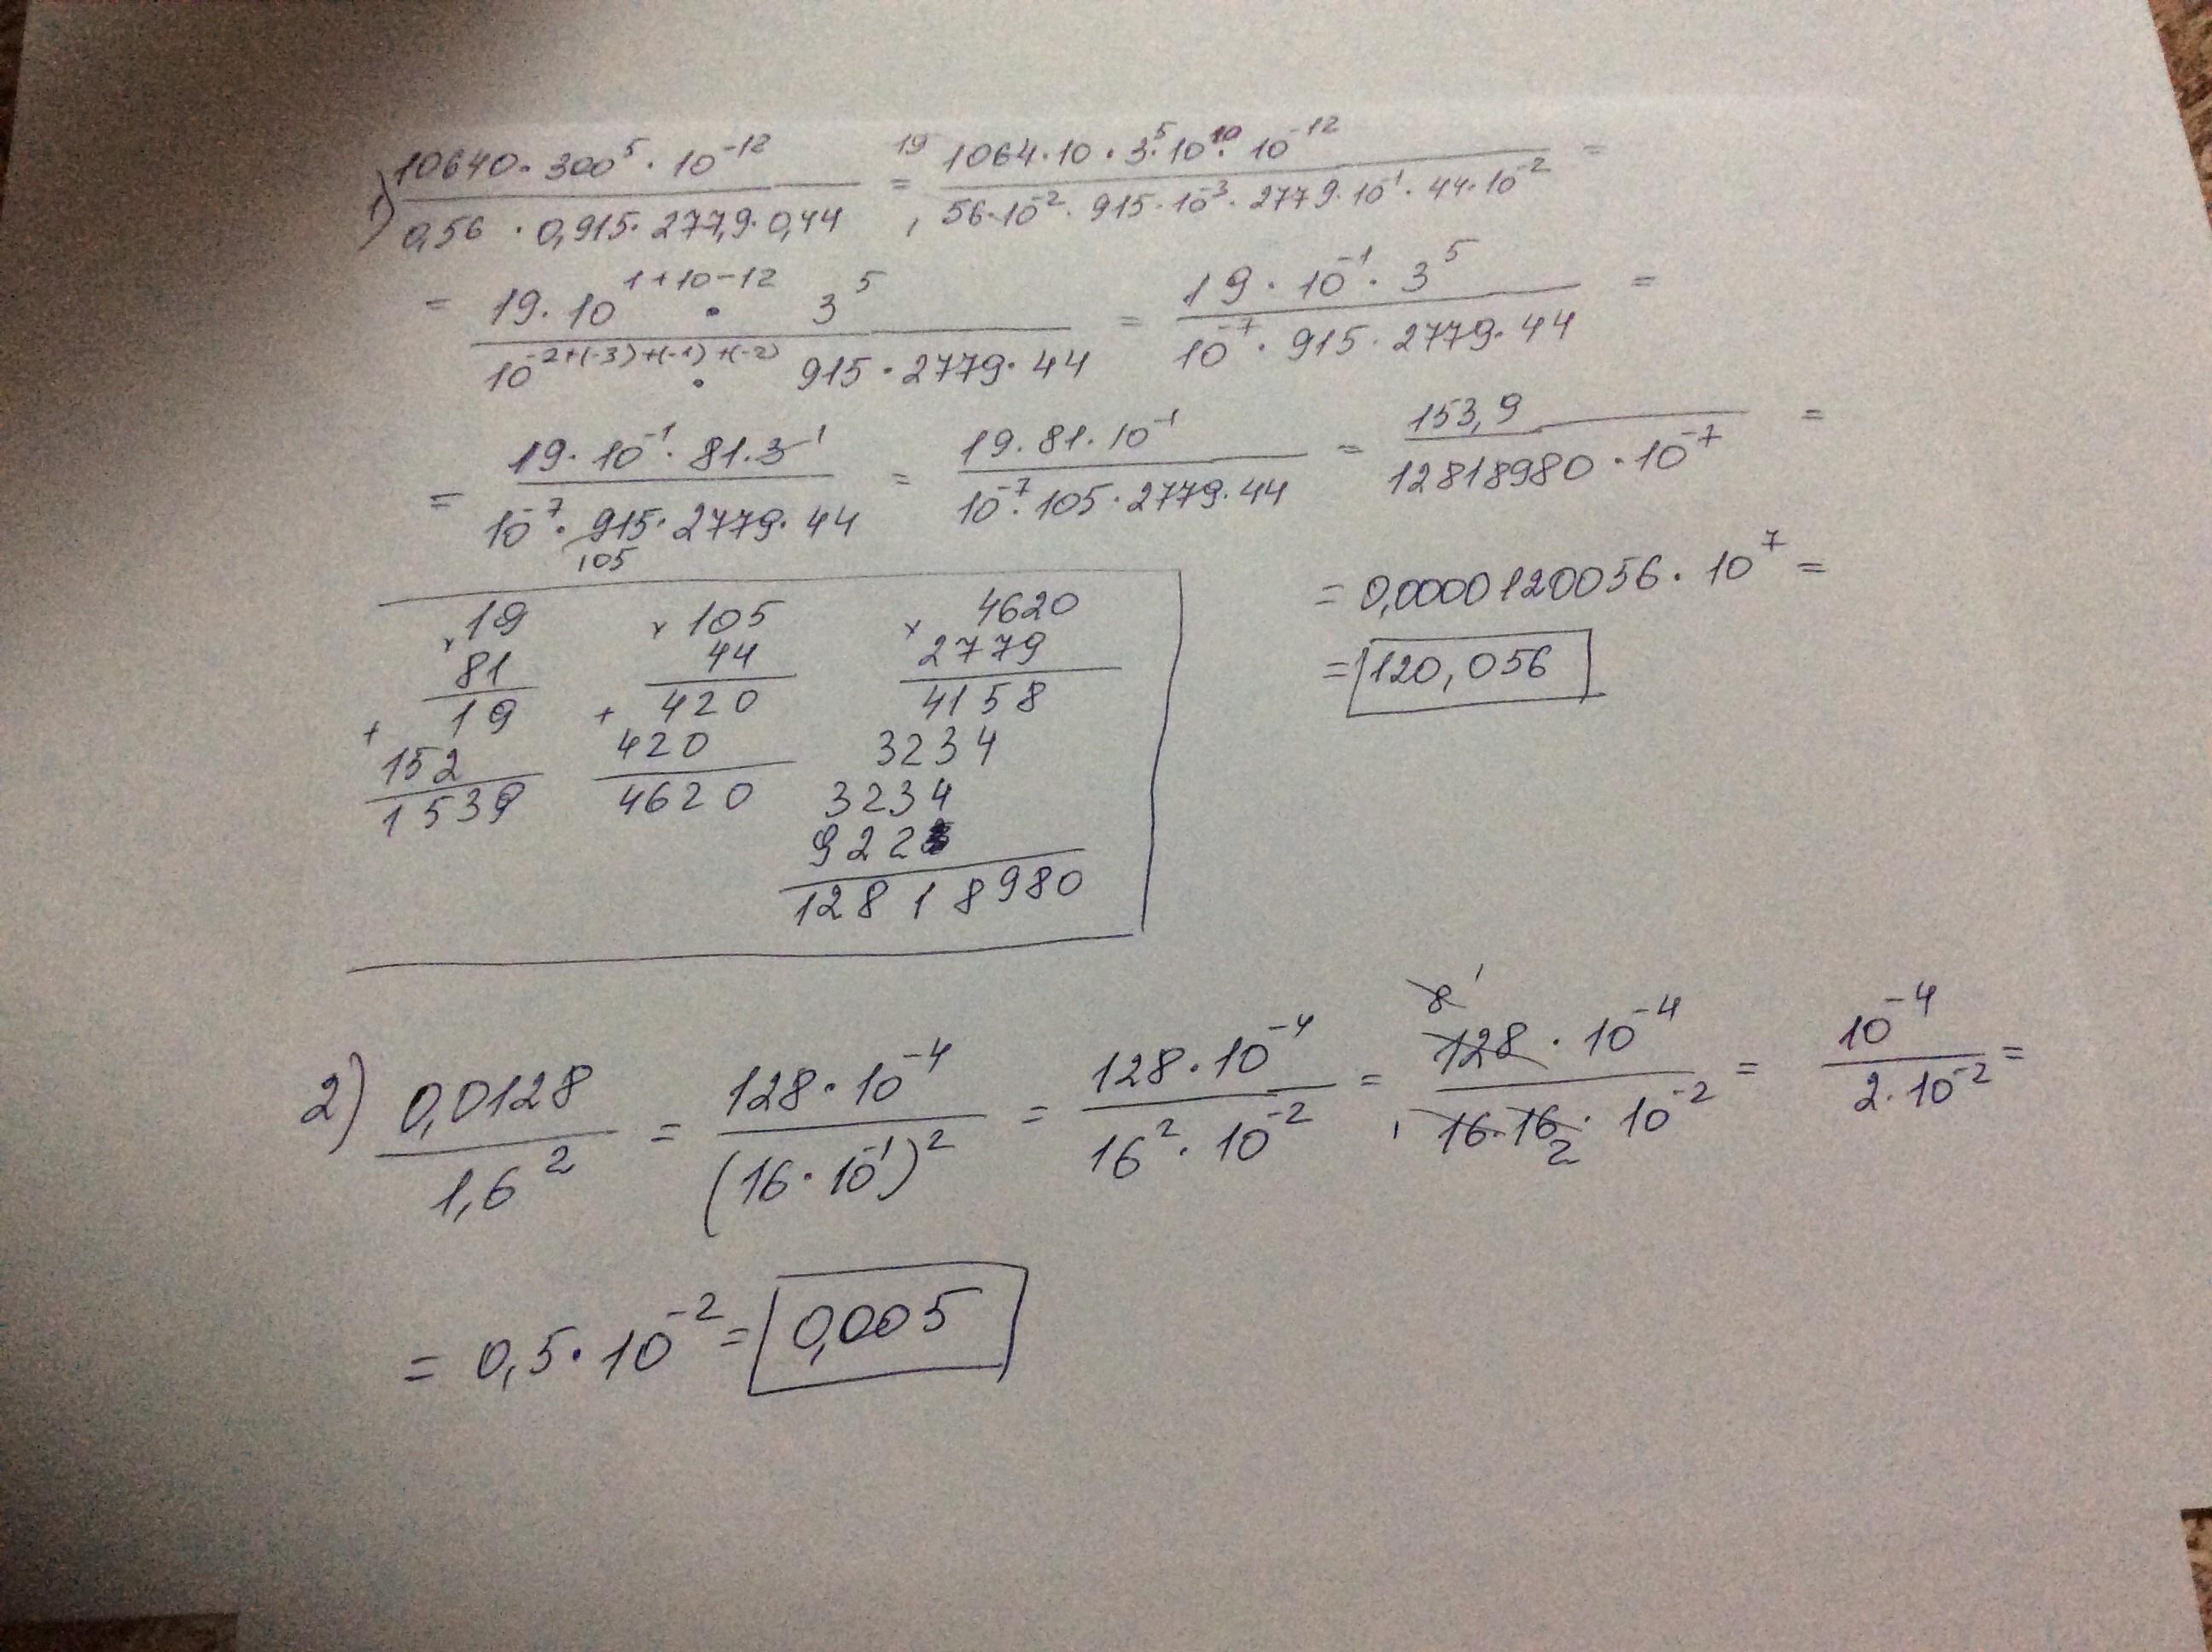 1) 10640 · 300⁵ · 10⁻¹² / 0,56 · 0,915 · 277,9 · 0,44 = 19 1064 · 10 · 3⁵ · 10¹⁰ · 10⁻¹² / 1 56 · 10⁻² · 915 · 10⁻³ · 2779 · 10⁻¹ · 44 · 10⁻² =
= 19 · 10¹⁺¹⁰⁻¹² · 3⁵ / 10⁻²⁺⁽⁻³⁾⁺⁽⁻¹⁾⁺⁽⁻²⁾ · 915 · 2779 · 44 = 19 · 10⁻¹ · 3⁵ / 10⁻⁷ · 915 · 2779 · 44 =
= 19 · 10⁻¹ · 81 · 3 1 / 10⁻⁷ · 915 105 · 2779 · 44 = 19 · 81 · 10⁻¹ / 10⁻⁷ · 105 · 2779 · 44 = 153,9 / 12818980 · 10⁻⁷ =
= 0,0000120056 · 10⁷ =
= 120,056
× 19
81
19
+ 152
1539
× 105
44
+ 420
420
4620
× 4620
2779
4158
3234
3234
922
12818980
2) 0,0128 / 1,6² = 128 · 10⁻⁴ / (16 · 10⁻¹)² = 128 · 10⁻⁴ / 16² · 10⁻² = 8 1 128 · 10⁻⁴ / 1 16 · 16 2 · 10⁻² = 10⁻⁴ / 2 · 10⁻² =
= 0,5 · 10⁻² = 0,005